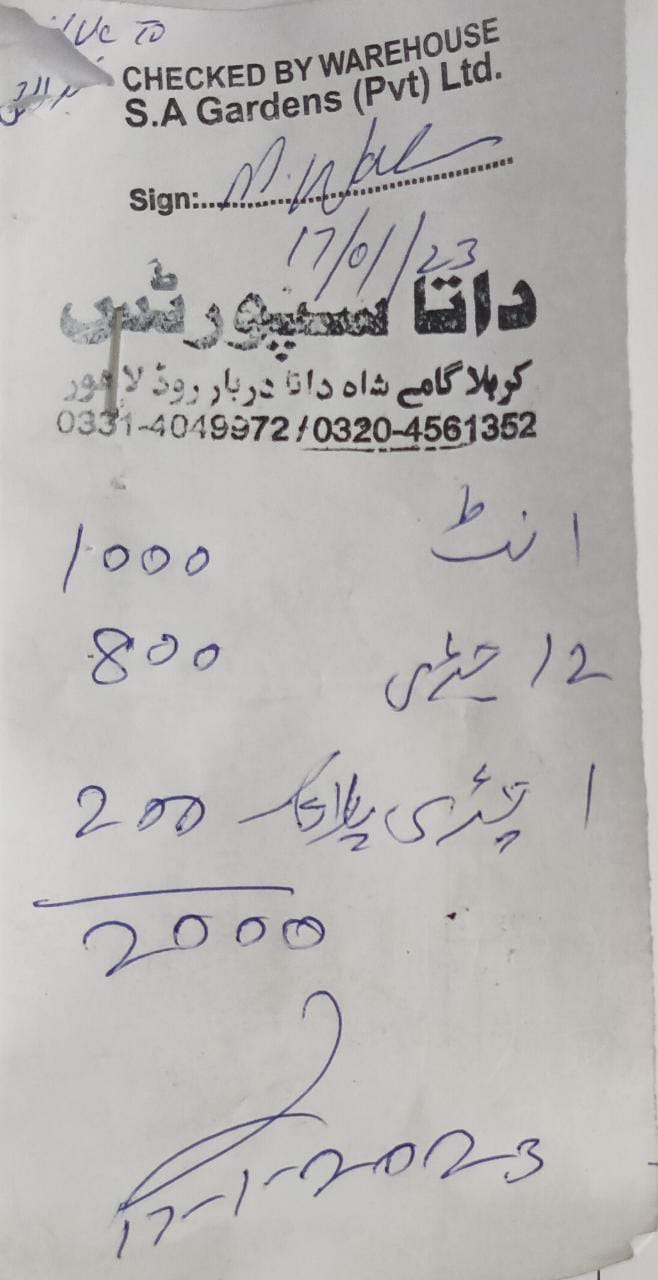 To
CHECKED BY WAREHOUSE
S.A Gardens (Pvt) Ltd.
Sign:
17/01/23
داتا سپورٹس
کربلا گامے شاہ داتا دربار روڈ لاہور
0331-4049972/0320-4561352
1 نٹ 1000
12 چڑی 800
1 چڑی 200
2000
17-1-2023